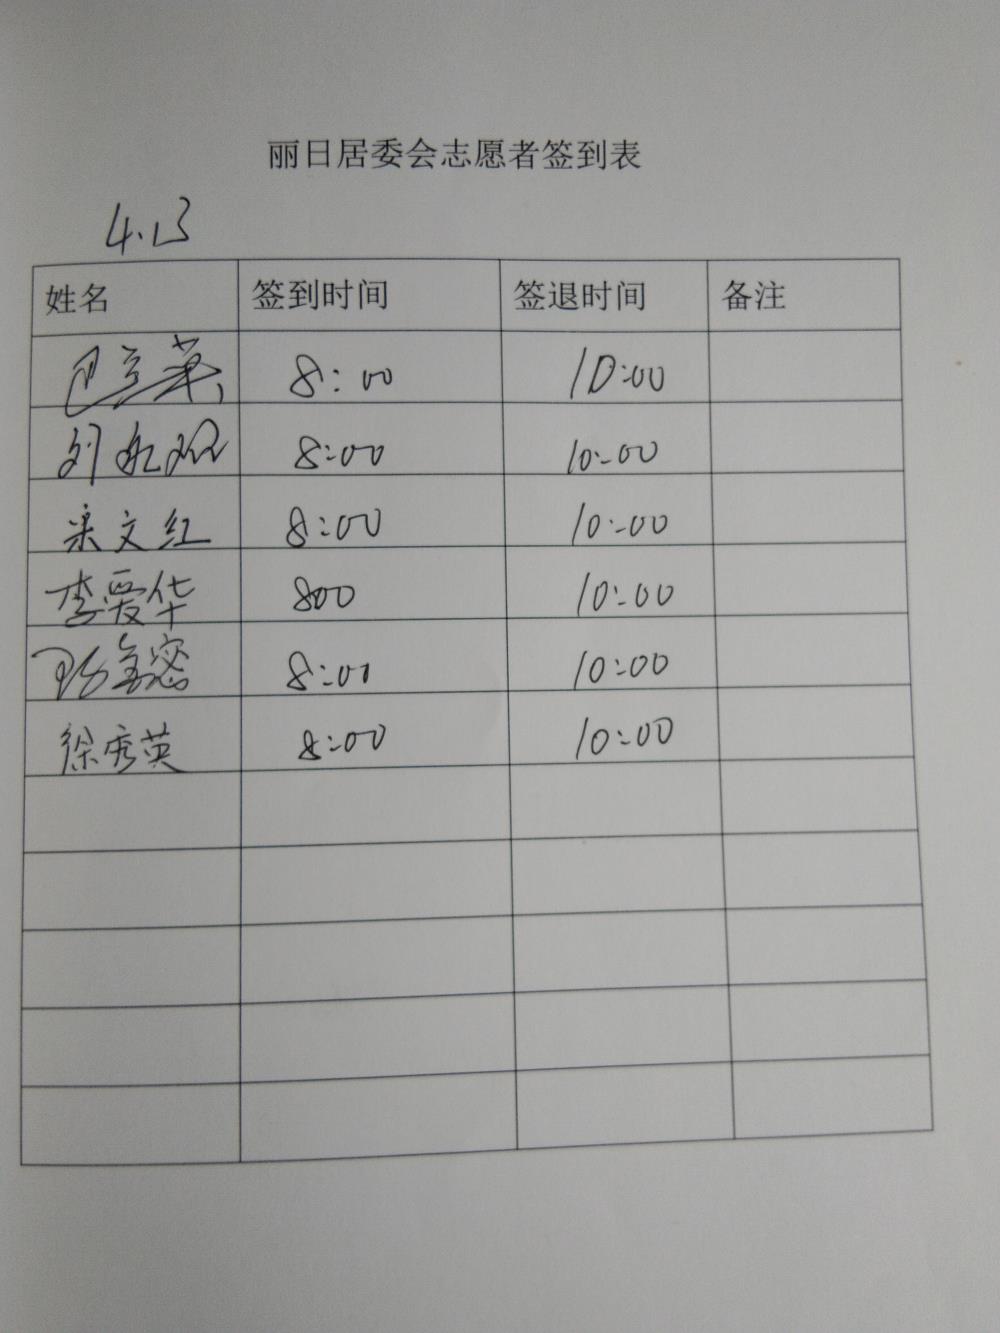 丽日居委会志愿者签到表
4.13
姓名 签到时间 签退时间 备注
8:00 10:00
刘 8:00 10:00
文红 8:00 10:00
李爱华 800 10:00
8:00 10:00
徐秀英 8:00 10:00